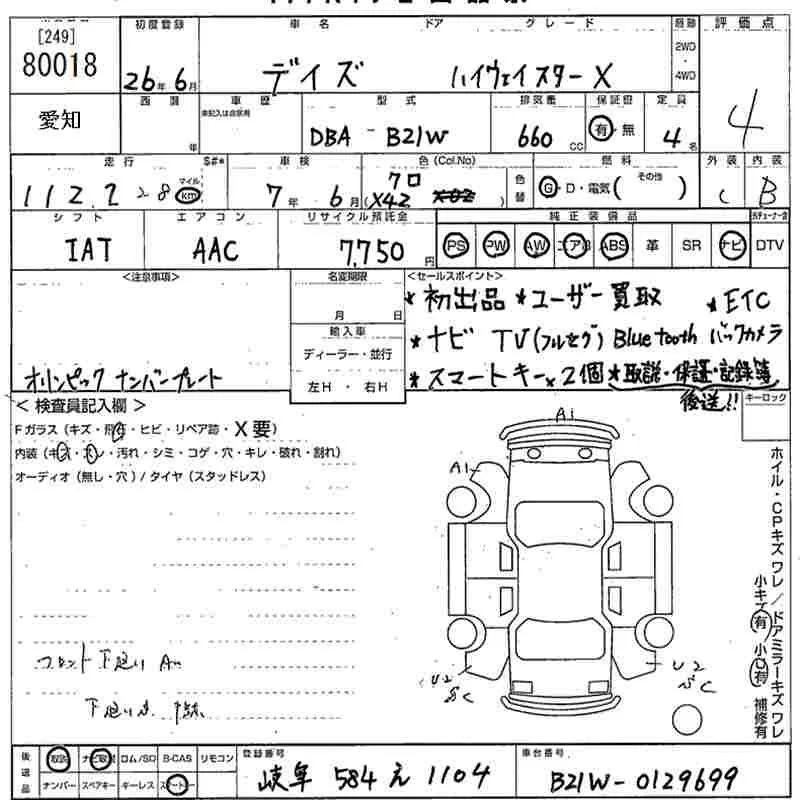 [249]
80018
愛知
初度登録
26年6月
車名 ドア グレード
デイズ ハイウェイスターX
駆動
2WD
4WD
評価点
4
西暦
年
車歴
未記入は自家用
型式
DBA-B21W
排気量
660cc
保証書
有・無
定員
4名
走行 S#*
112,228 マイル km
車検
7年6月
色(Col.No)
クロ
(X42)
色替
燃料
G・D・電気( その他 )
外装
C
内装
B
シフト
IAT
エアコン
AAC
リサイクル預託金
7,750円
純正装備品
PS PW AW エアB ABS 革 SR ナビ DTV
<注意事項>
オリンピックナンバープレート
名変期限
月 日
輸入車
ディーラー・並行
左H・右H
<セールスポイント>
*初出品 *ユーザー買取 *ETC
*ナビ TV(フルセグ) Bluetooth バックカメラ
*スマートキー×2個 *取説・保証・記録簿
後送!!
キーロック
<検査員記入欄>
Fガラス(キズ・飛石・ヒビ・リペア跡・X要)
内装(キズ・スレ・汚れ・シミ・コゲ・穴・キレ・破れ・割れ)
オーディオ(無し・穴)/タイヤ(スタッドレス)
フロント下廻り
下廻り
A1
A1
U2
U2
ホイル・CPキズワレ/ドアミラーキズワレ
小キズ有 小凹有 補修有
後送品
取説 ナビ取説 ロム/SD B-CAS リモコン
ナンバー スペアキー キーレス スマートキー
登録番号
岐阜 584 え 1104
車台番号
B21W-0129699